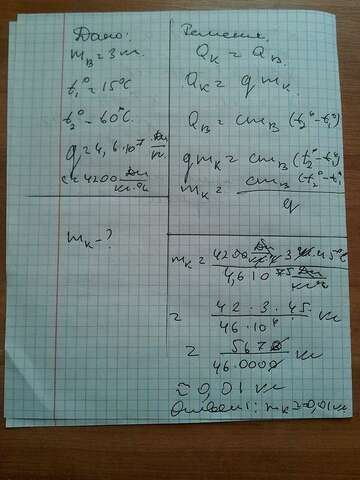 Дано:
mв = 3 л.
t₁° = 15°C
t₂° - 60°C
q = 4,6·10⁷ Дж/кг
c = 4200 Дж/кг·°C
mк - ?
Решение:
Qк = Qв
Qк = q mк
Qв = cmв (t₂° - t₁°)
q mк = cmв (t₂° - t₁°)
mк = cmв (t₂° - t₁°) / q
= 42 · 3 · 45 / 46 · 10⁴ кг
= 5670 / 46.0000 кг
≈ 0,01 кг
Ответ: mк ≈ 0,01 кг